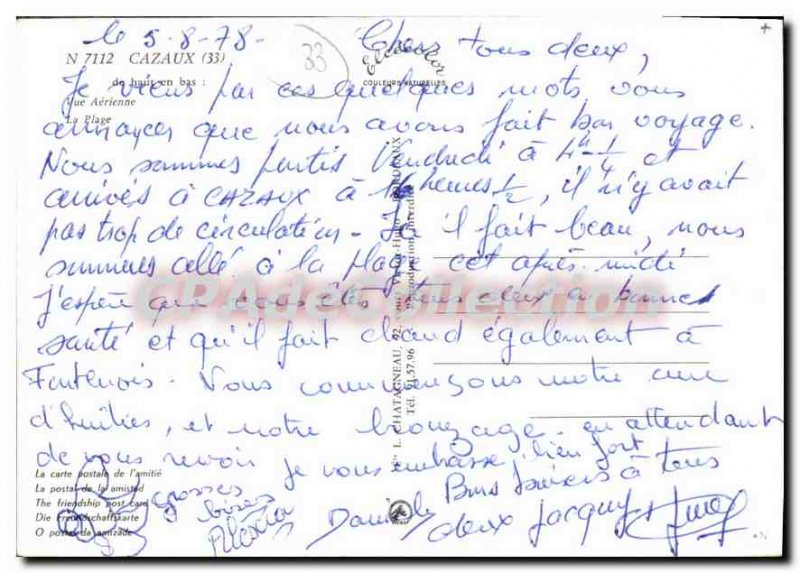 le 5-8-78-
Chers tous deux,
N 7112 CAZAUX (33)
33
de haut en bas :
Vue Aérienne
La Plage
Elcécolor
COULEURS NATURELLES
Je viens par ces quelques mots vous
annoncer que nous avons fait bon voyage.
Nous sommes partis Vendredi à 4H 1/4 et
arrivés à CAZAUX à heures 1/2, il n'y avait
pas trop de circulation - Ici il fait beau, nous
sommes allé à la plage cet après midi
J'espère que vous êtes tous deux en bonnes
santé et qu'il fait chaud également à
Fontenois. Nous commençons notre cure
d'huîtres, et notre bronzage. en attendant
de vous revoir je vous embrasse bien fort
La carte postale de l'amitié
La postal de la amistad
The friendship post card
Die Freundschaftskarte
O postal da amizade
grosses
bises
Daniele
Bons baisers à tous
deux Jacques
L. CHATAGNEAU, 92, rue
BORDEAUX
Tél. 91.57.96
Reproduction interdite
CPADeCollection